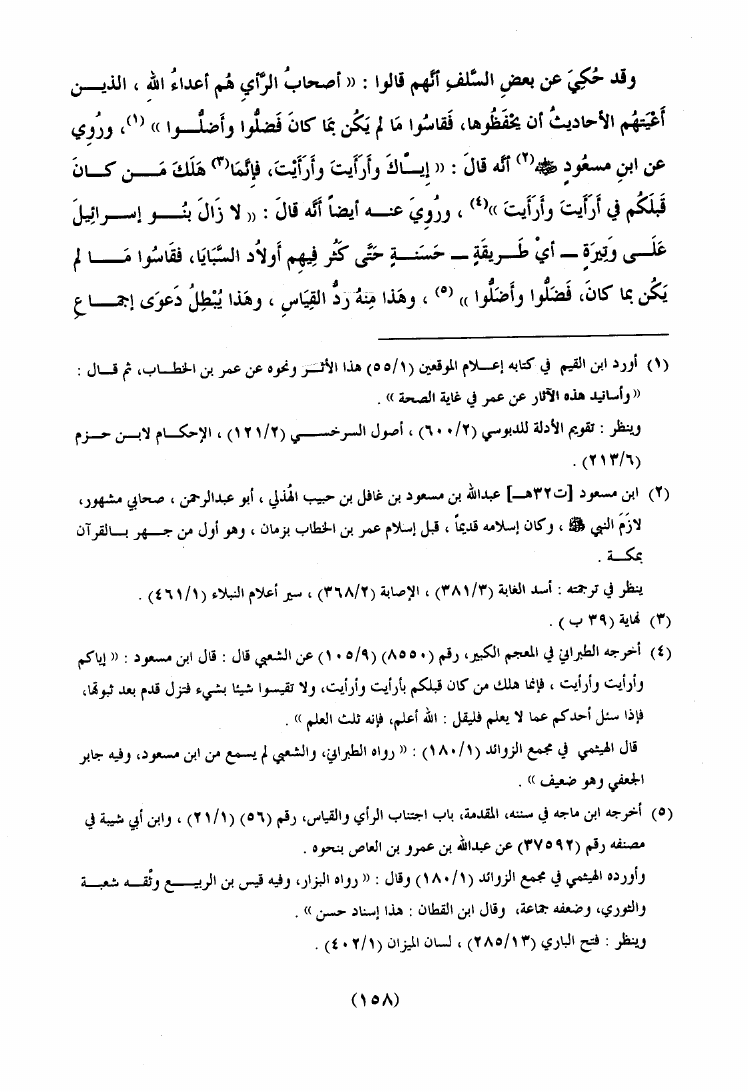 وقد حُكِيَ عن بعضِ السَّلفِ أنَّهم قالوا : « أصحابُ الرَّأيِ هُم أعداءُ اللهِ ، الذيـــن
أَعْيَتهُم الأحاديثُ أن يَحْفَظُوها، فَقاسُوا مَا لم يَكُن بمَا كانَ فَضلُّوا وأضلُّــوا » (١)، ورُوِي
عن ابنِ مسعُودٍ ﷺ(٢) أنَّه قالَ : « إيــَّاكَ وأَرأيتَ وأَرأَيْتَ، فَإنَّمَا(٣) هَلَكَ مَــن كـــانَ
قَبلَكُم في أَرَأَيتَ وأَرَأَيتَ »(٤) ، ورُوِيَ عنــه أيضاً أنَّه قالَ : « لا زَالَ بنُـــو إســرائيلَ
عَلَــى وَتِيرَةٍ – أيْ طَــريقَةٍ – حَسَنَـــةٍ حَتَّى كَثُر فِيهِم أَولادُ السَّبَايَا، فقَاسُوا مَـــا لم
يَكُن بما كانَ، فَضلُّوا وأضَلُّوا » (٥) ، وهَذا مِنهُ رَدُّ القِيَاسِ ، وهَذا يُبْطِلُ دَعوَى إجمَـــاعِ
(١) أورد ابن القيم في كتابه إعــلام الموقعين (٥٥/١) هذا الأثــر ونحوه عن عمر بن الخطــاب، ثم قــال :
« وأسانيد هذه الآثار عن عمر في غاية الصحة » .
وينظر : تقويم الأدلة للدبوسي (٦٠٠/٢) ، أصول السرخســي (١٢١/٢) ، الإحكــام لابــن حــزم
(٢١٣/٦) .
(٢) ابن مسعود [ت٣٢هــ] عبدالله بن مسعود بن غافل بن حبيب الهُذلي ، أبو عبدالرحمن ، صحابي مشهور،
لازَمَ النبي ﷺ ، وكان إسلامه قديماً ، قبل إسلام عمر بن الخطاب بزمان ، وهو أول من جــهر بــالقرآن
بمكــة .
ينظر في ترجمته : أسد الغابة (٣٨١/٣) ، الإصابة (٣٦٨/٢) ، سير أعلام النبلاء (٤٦١/١) .
(٣) نهاية (٣٩ ب ) .
(٤) أخرجه الطبراني في المعجم الكبير، رقم (٨٥٥٠) (١٠٥/٩) عن الشعبي قال : قال ابن مسعود : « إياكم
وأرأيت وأرأيت ، فإنما هلك من كان قبلكم بأرأيت وأرأيت، ولا تقيسوا شيئا بشيء فتزل قدم بعد ثبوتها،
فإذا سئل أحدكم عما لا يعلم فليقل : الله أعلم، فإنه ثلث العلم » .
قال الهيثمي في مجمع الزوائد (١٨٠/١) : « رواه الطبراني، والشعبي لم يسمع من ابن مسعود، وفيه جابر
الجعفي وهو ضعيف » .
(٥) أخرجه ابن ماجه في سننه، المقدمة، باب اجتناب الرأي والقياس، رقم (٥٦) (٢١/١) ، وابن أبي شيبة في
مصنفه رقم (٣٧٥٩٢) عن عبدالله بن عمرو بن العاص بنحوه .
وأورده الهيثمي في مجمع الزوائد (١٨٠/١) وقال : « رواه البزار، وفيه قيس بن الربيــع وثّقــه شعبــة
والثوري، وضعفه جماعة، وقال ابن القطان : هذا إسناد حسن » .
وينظر : فتح الباري (٢٨٥/١٣) ، لسان الميزان (٤٠٢/١) .
(١٥٨)